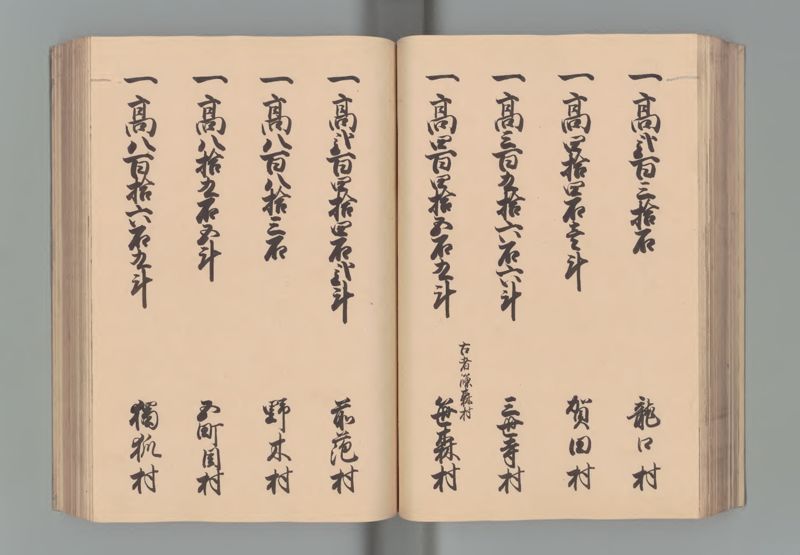 一高弐百三拾石 龍口村
一高四拾四石壱斗 賀田村
一高三百九拾六石六斗 三世寺村
一高四百四拾五石九斗 古者森村 笹森村
一高弐百四拾四石弐斗 前萢村
一高八百八拾三石 野木村
一高八拾九石五斗 五町田村
一高八百拾六石九斗 獨狐村